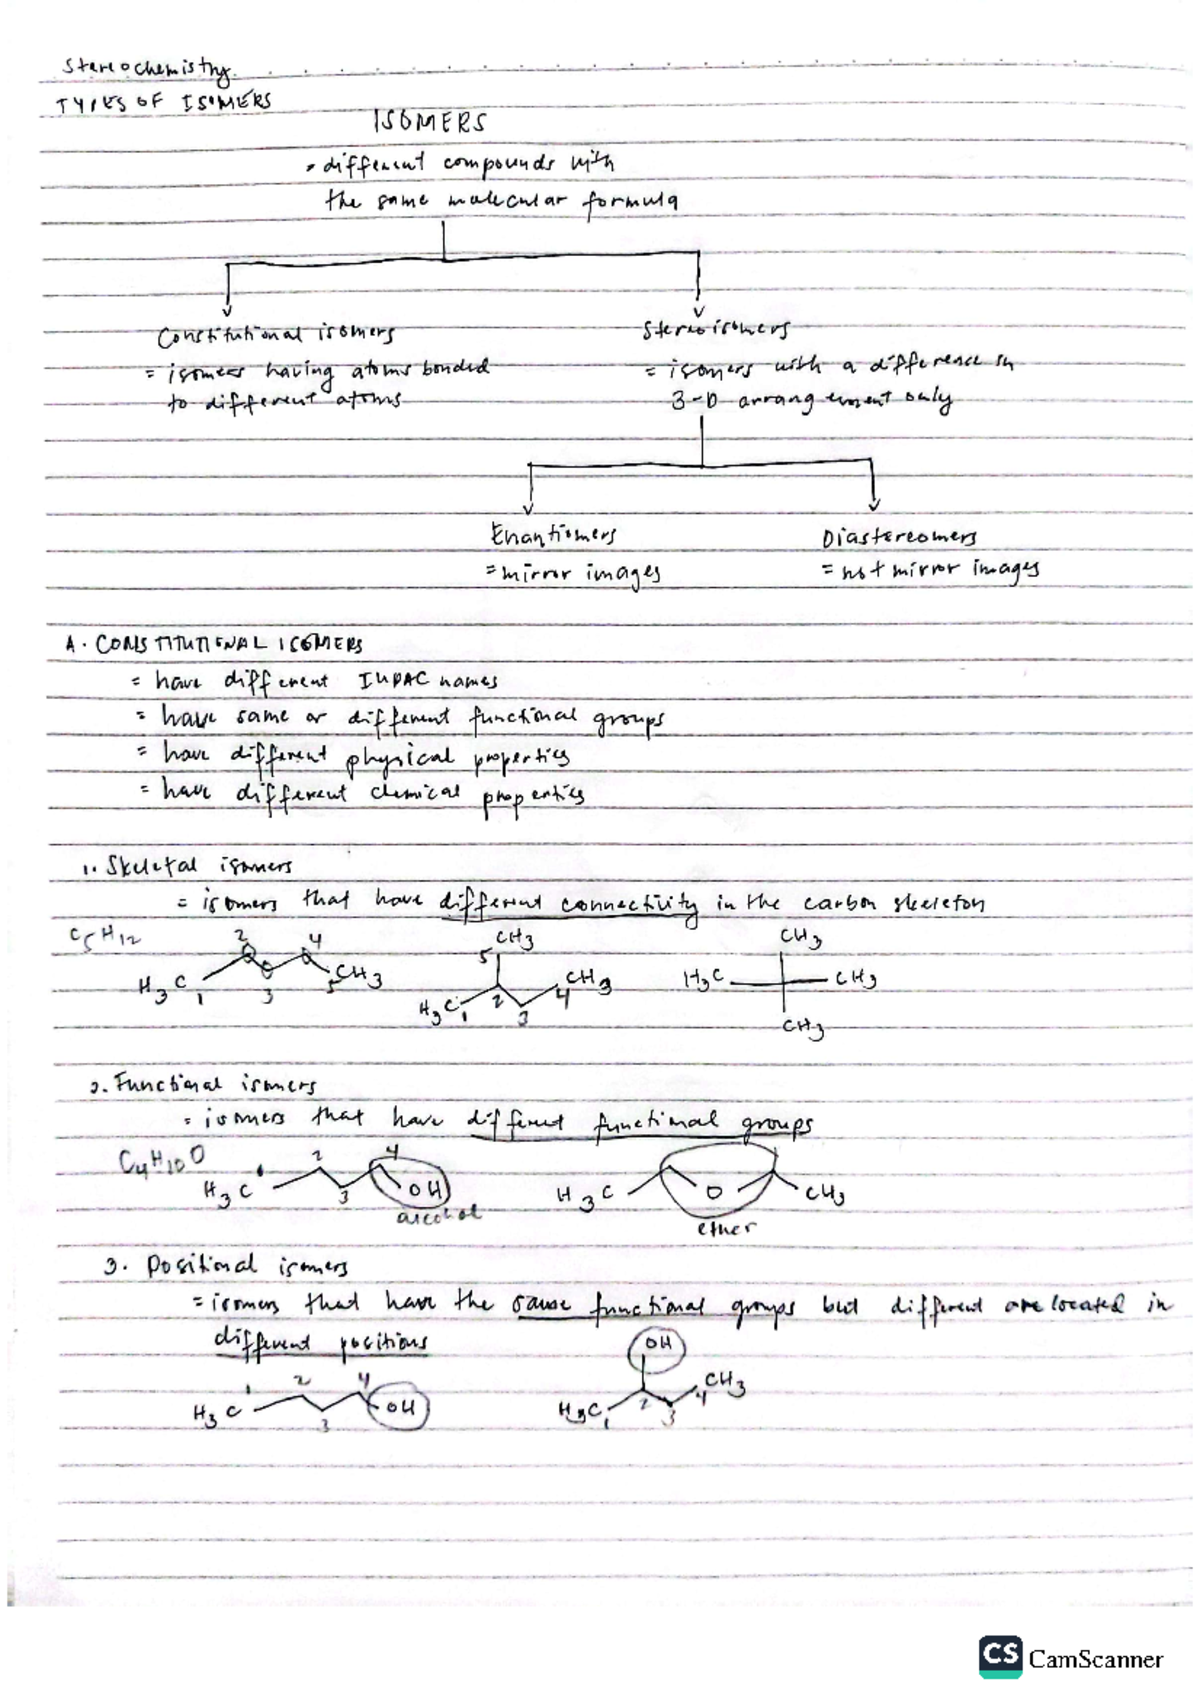 Stereochemistry
TYPES OF ISOMERS
ISOMERS
= different compounds with
the same molecular formula
Constitutional isomers
Stereoisomers
= isomers having atoms bonded
to different atoms
= isomers with a difference in
3-D arrangement only
Enantiomers
Diastereomers
= mirror images
= not mirror images
A. CONSTITUTIONAL ISOMERS
= have different IUPAC names
= have same or different functional groups
= have different physical properties
= have different chemical properties
1. Skeletal isomers
= isomers that have different connectivity in the carbon skeleton
C5H12
H3C 1 2 3 4 5 CH3
H3C 1 2 3 4 CH3 5 CH3
H3C CH3 CH3 CH3
2. Functional isomers
= isomers that have different functional groups
C4H10O
H3C 2 3 4 OH
alcohol
H3C O CH3
ether
3. Positional isomers
= isomers that have the same functional groups but different are located in
different positions
H3C 1 2 3 4 OH
OH
H3C 1 2 3 4 CH3
CS CamScanner